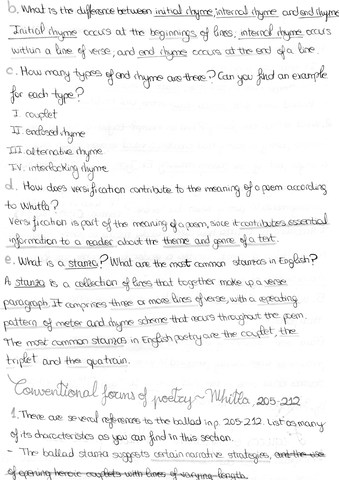 b. What is the difference between initial rhyme, internal rhyme and end rhyme
Initial rhyme occurs at the beginnings of lines, internal rhyme occurs
within a line of verse, and end rhyme occurs at the end of a line.
c. How many types of end rhyme are there? Can you find an example
for each type?
I. couplet
II. enclosed rhyme
III alternative rhyme
IV. interlocking rhyme
d. How does versification contribute to the meaning of a poem according
to Whitla?
Versification is part of the meaning of a poem, since it contributes essential
information to a reader about the theme and genre of a text.
e. What is a stanza? What are the most common stanzas in English?
A stanza is a collection of lines that together make up a verse
paragraph. It comprises three or more lines of verse, with a repeating
pattern of meter and rhyme scheme that occurs throughout the poem.
The most common stanzas in English poetry are the couplet, the
triplet and the quatrain.
Conventional forms of poetry ~ Whitla, 205-212
1. There are several references to the ballad in p. 205-212. List as many
of its characteristics as you can find in this section.
- The ballad stanza suggests certain narrative strategies, and the use
of opening heroic couplets with lines of varying length.